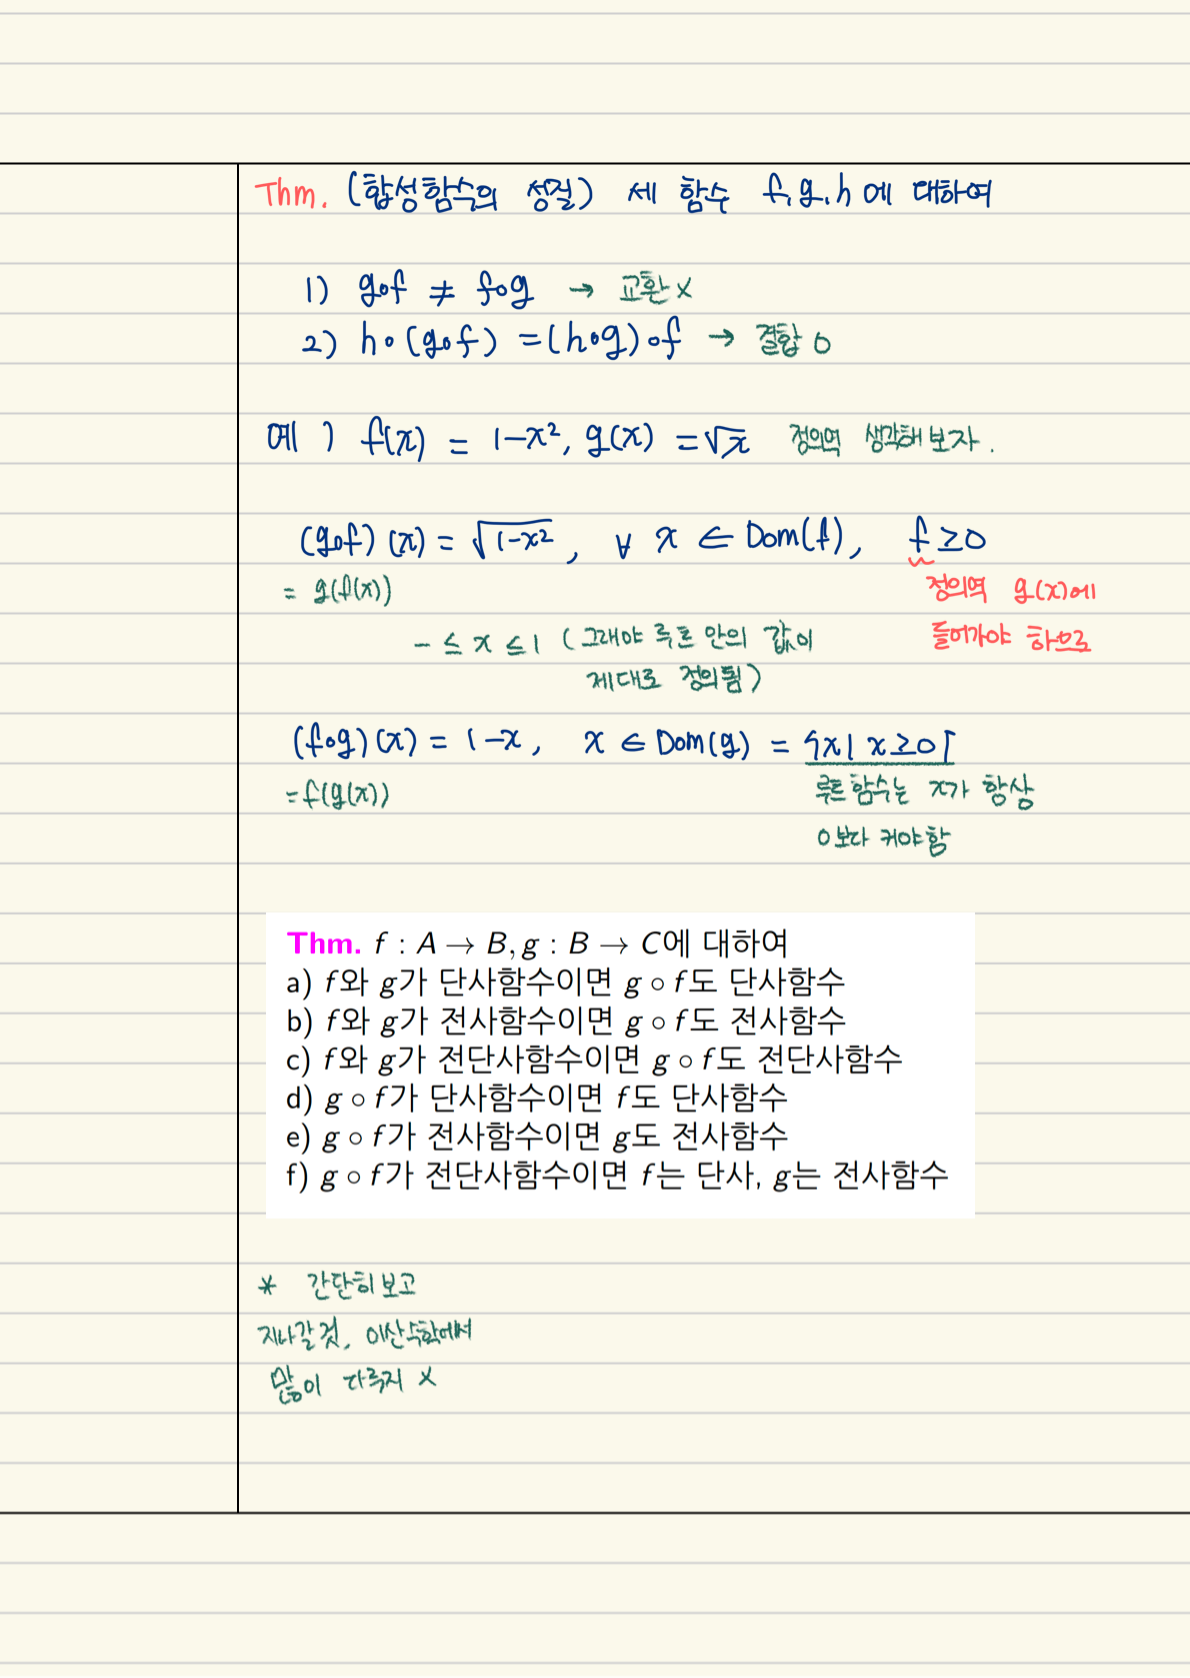 Thm. (합성함수의 성질) 세 함수 f, g, h 에 대하여
1) g∘f ≠ f∘g → 교환 X
2) h∘(g∘f) = (h∘g)∘f → 결합 O
예) f(x) = 1-x², g(x) = √x 정의역 생각해보자.
(g∘f)(x) = √1-x², ∀ x ∈ Dom(f), f ≥ 0
= g(f(x))
정의역 g(x)에
들어가야 하므로
- ≤ x ≤ 1 (그래야 루트 안의 값이
제대로 정의됨)
(f∘g)(x) = 1-x, x ∈ Dom(g) = {x | x ≥ 0}
= f(g(x))
루트 함수는 x가 항상
0보다 커야함
Thm. f : A → B, g : B → C에 대하여
a) f와 g가 단사함수이면 g ∘ f도 단사함수
b) f와 g가 전사함수이면 g ∘ f도 전사함수
c) f와 g가 전단사함수이면 g ∘ f도 전단사함수
d) g ∘ f가 단사함수이면 f도 단사함수
e) g ∘ f가 전사함수이면 g도 전사함수
f) g ∘ f가 전단사함수이면 f는 단사, g는 전사함수
* 간단히 보고
지나갈 것, 이산수학에서
많이 다루지 X